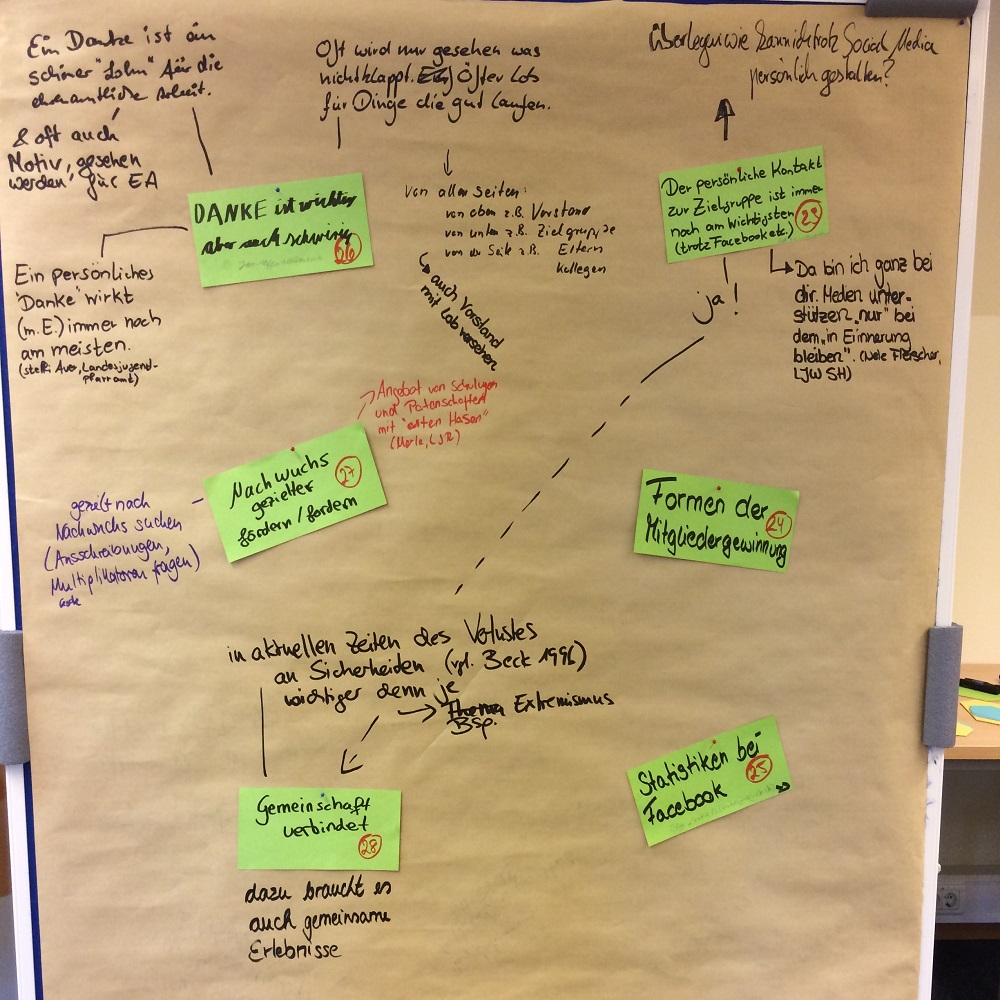 Ein Danke ist ein
schöner "Lohn" für die
ehrenamtliche Arbeit.
& oft auch
Motiv, "gesehen
werden" für EA
Oft wird nur gesehen was
nicht klappt. Öfter Lob
für Dinge die gut laufen.
Von allen Seiten:
von oben z.B. Vorstand
von unten z.B. Zielgruppe
von der Seite z.B. Eltern
Kollegen
auch Vorstand
mit Lob versehen
DANKE ist wichtig
aber auch schwierig
26
Ein persönliches
"Danke" wirkt
(m.E.) immer noch
am meisten.
Landesjugend-
pfarramt)
Überlegen wie kann ich trotz Social Media
persönlich gestalten?
Der persönliche Kontakt
zur Zielgruppe ist immer
noch am wichtigsten
(trotz Facebook etc.)
23
ja!
Da bin ich ganz bei
dir. Medien unter-
stützen "nur" bei
dem "in Erinnerung
bleiben". (Nele
LJW SH)
Angebot von Schulungen
und Patenschaften
mit "alten Hasen"
(Merle, LJR)
Nachwuchs
gezielter
fördern/fordern
27
gezielt nach
Nachwuchs suchen
(Ausschreibungen,
Multiplikatoren fragen)
Formen der
Mitgliedergewinnung
24
in aktuellen Zeiten des Verlustes
an Sicherheiten (vgl. Beck 1996)
wichtiger denn je
Bsp. Extremismus
Gemeinschaft
verbindet
28
dazu braucht es
auch gemeinsame
Erlebnisse
Statistiken bei
Facebook
25